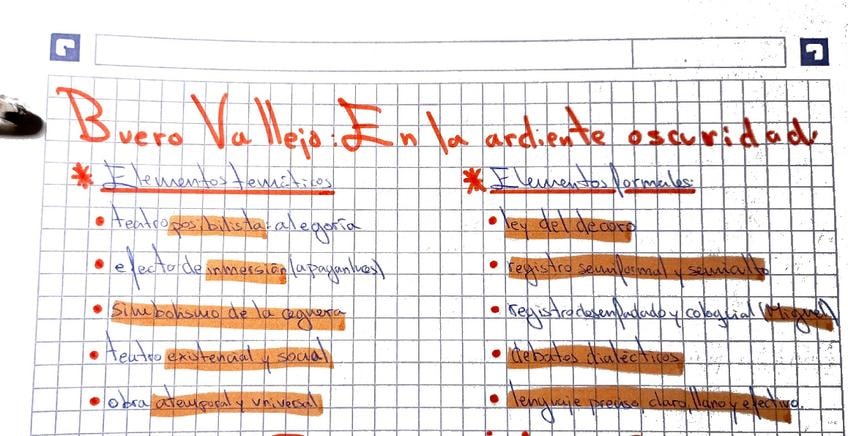 Buero Vallejo: En la ardiente oscuridad
* Elementos temáticos
• teatro posibilista: alegoría
• efecto de inmersión (apagan luces)
• simbolismo de la ceguera
• teatro existencial y social
• obra atemporal y universal
* Elementos formales:
• ley del decoro
• registro semiformal y semiculto
• registro desenfadado y coloquial (Miguel)
• debates dialécticos
• lenguaje preciso, claro, llano y efectivo.